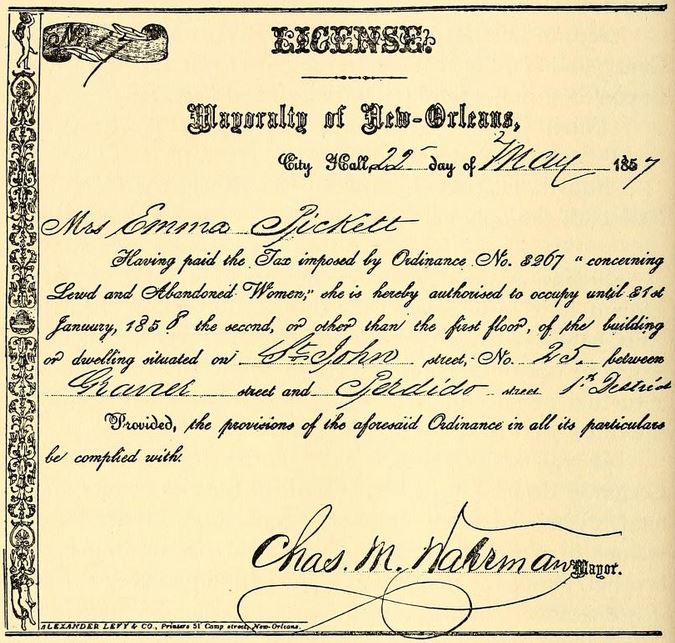 No.
LICENSE.
Mayoralty of New-Orleans,
City Hall, 22 day of May 1857
Mrs Emma Pickett
Having paid the Tax imposed by Ordinance No. 3267 "concerning
Lewd and Abandoned Women," she is hereby authorised to occupy until 31st
January, 1858 the second, or other than the first floor, of the building
or dwelling situated on St. John street, No. 25. between
Gravier street and Perdido street 1st District
Provided, the provisions of the aforesaid Ordinance in all its particulars
be complied with.
Chas. M. Waterman Mayor.
ALEXANDER LEVY & CO., Printers 51 Camp street, New-Orleans.